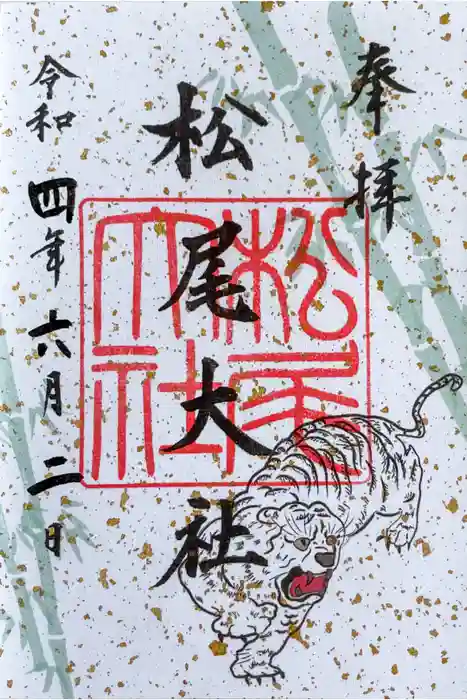 奉拝
松尾大社
松尾大社
令和四年六月二日